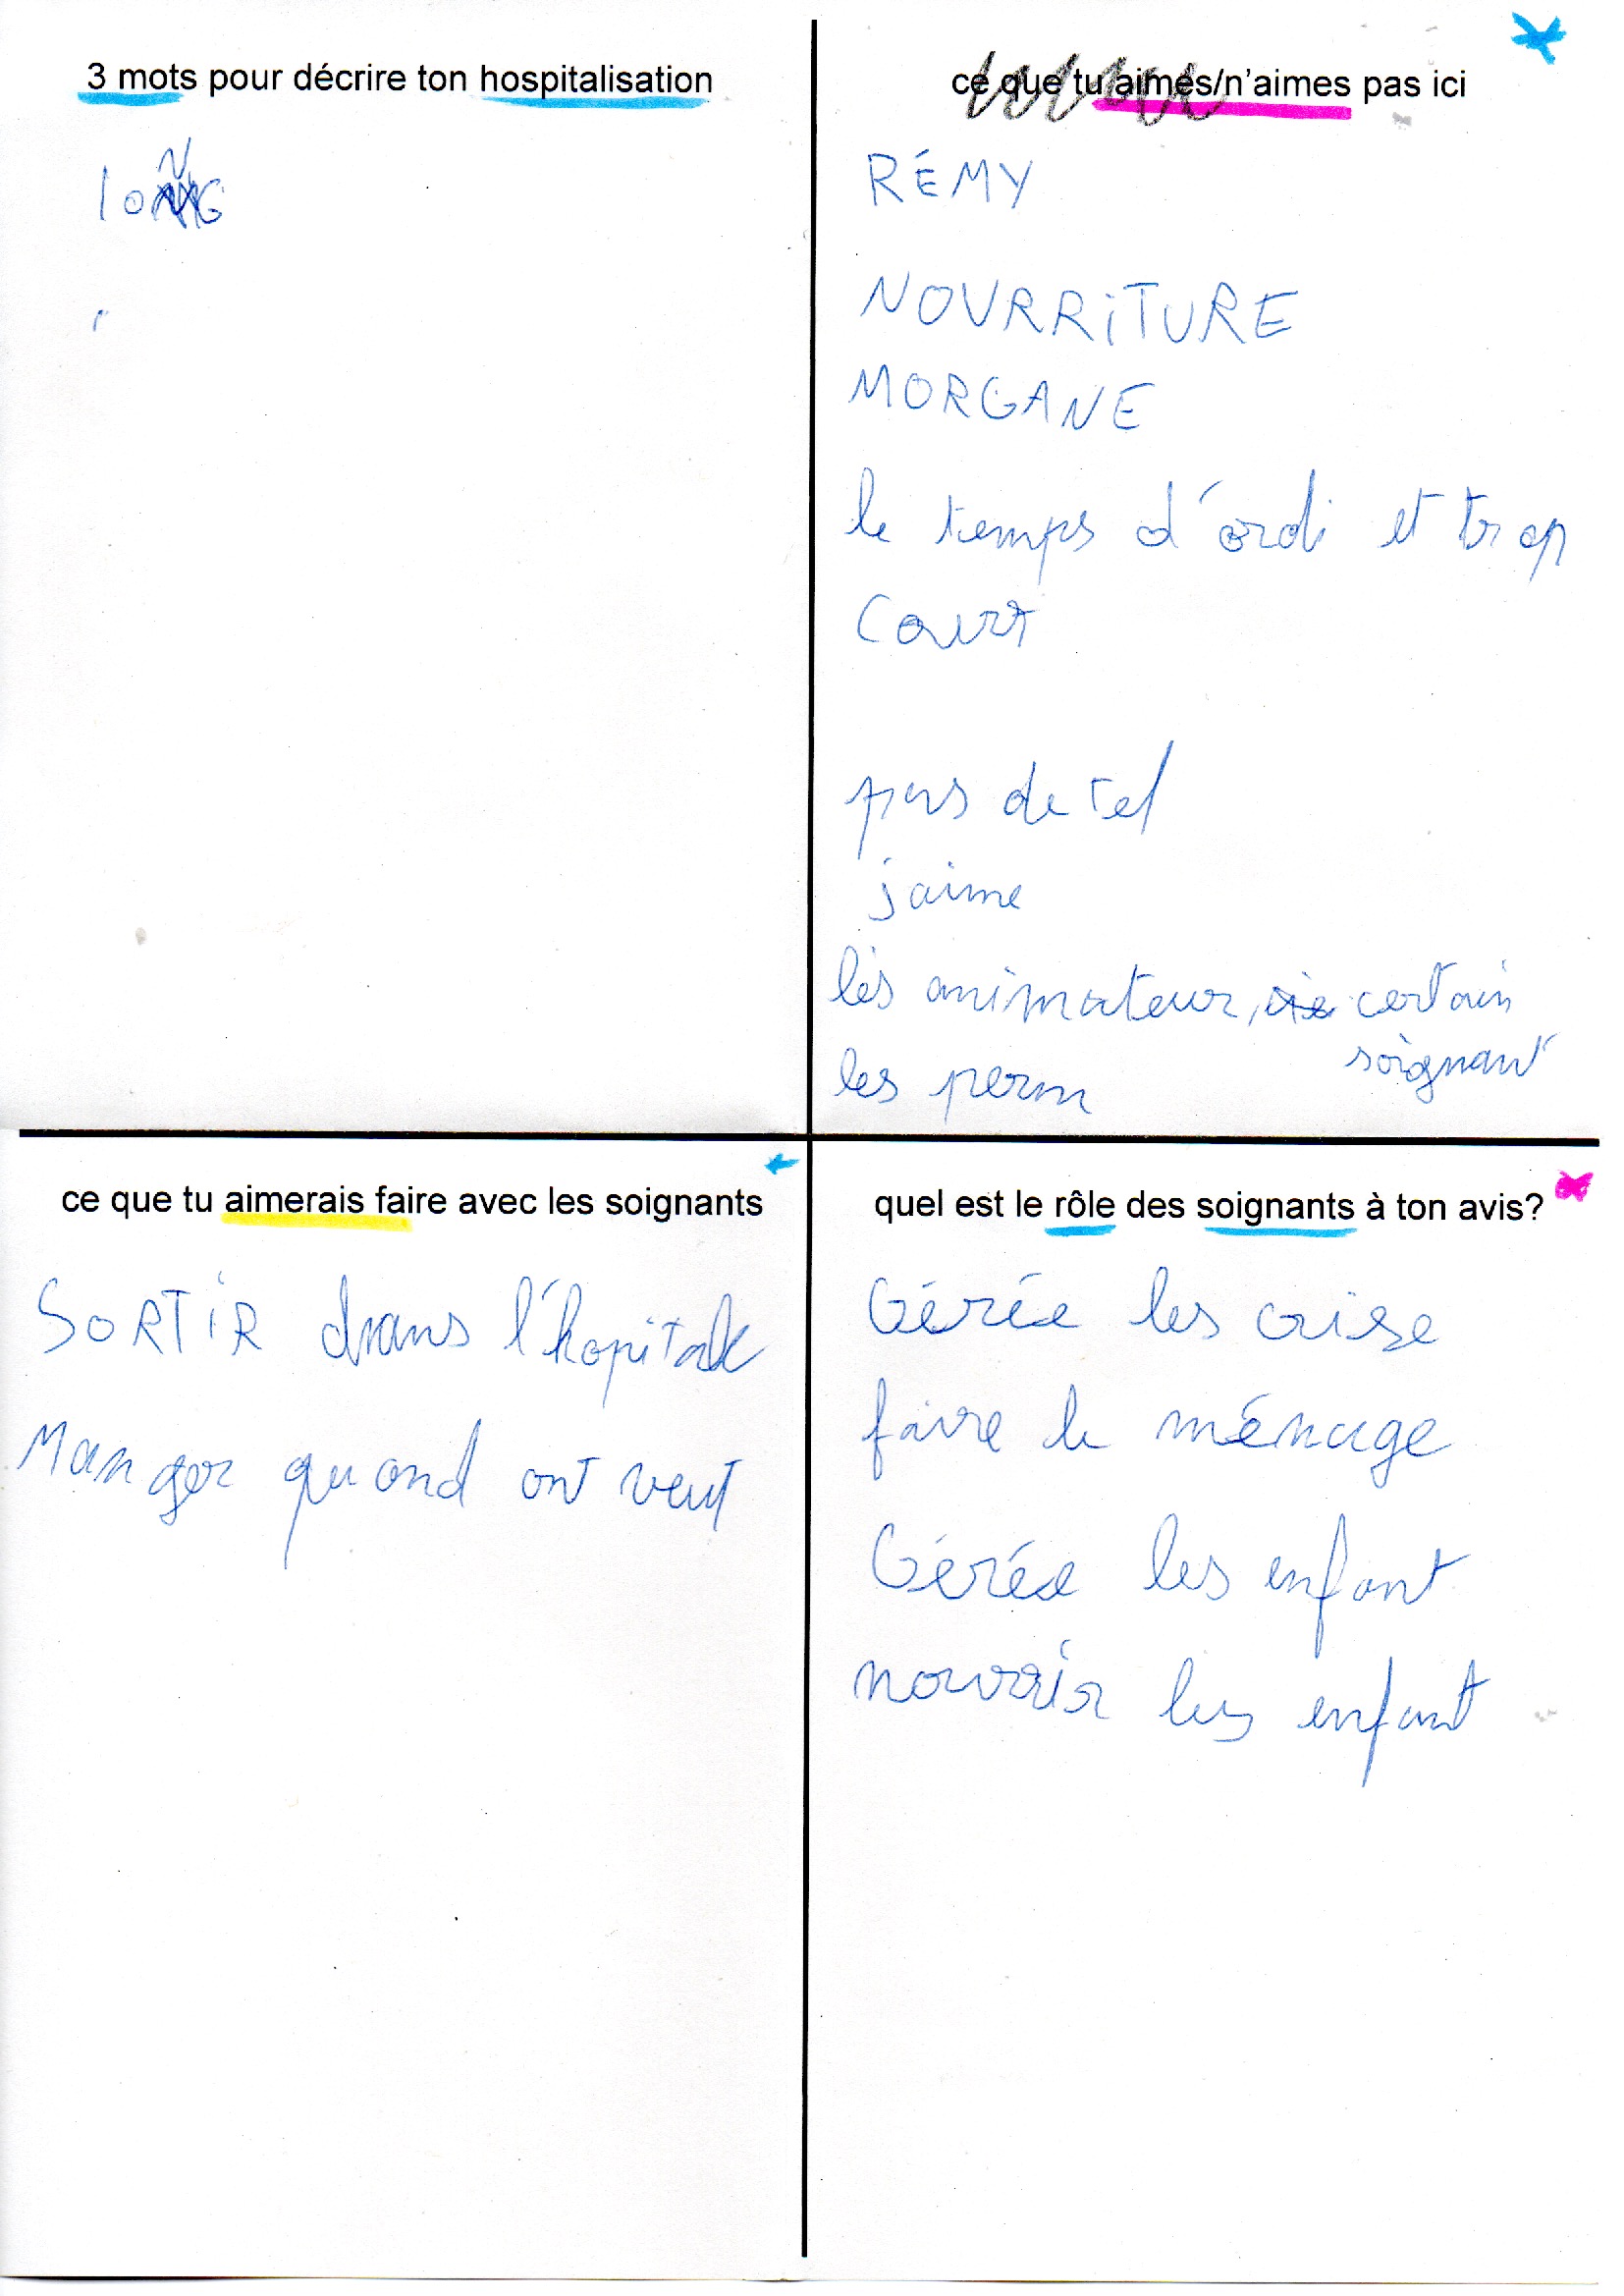 3 mots pour décrire ton hospitalisation
loNG
ce que tu aimes/n'aimes pas ici
RÉMY
NOURRiTURE
MORGANE
le temps d'ordi et trop
court
pas de tel
jaime
les animateur, certain
soignant
les perm
ce que tu aimerais faire avec les soignants
SORTiR dans l'hopital
Manger quand ont veut
quel est le rôle des soignants à ton avis?
Gérée les crise
faire le ménage
Gérée les enfant
nourrir les enfant